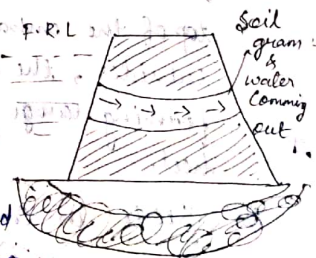 F.R.L
Soil
grain
&
water
Comming
out